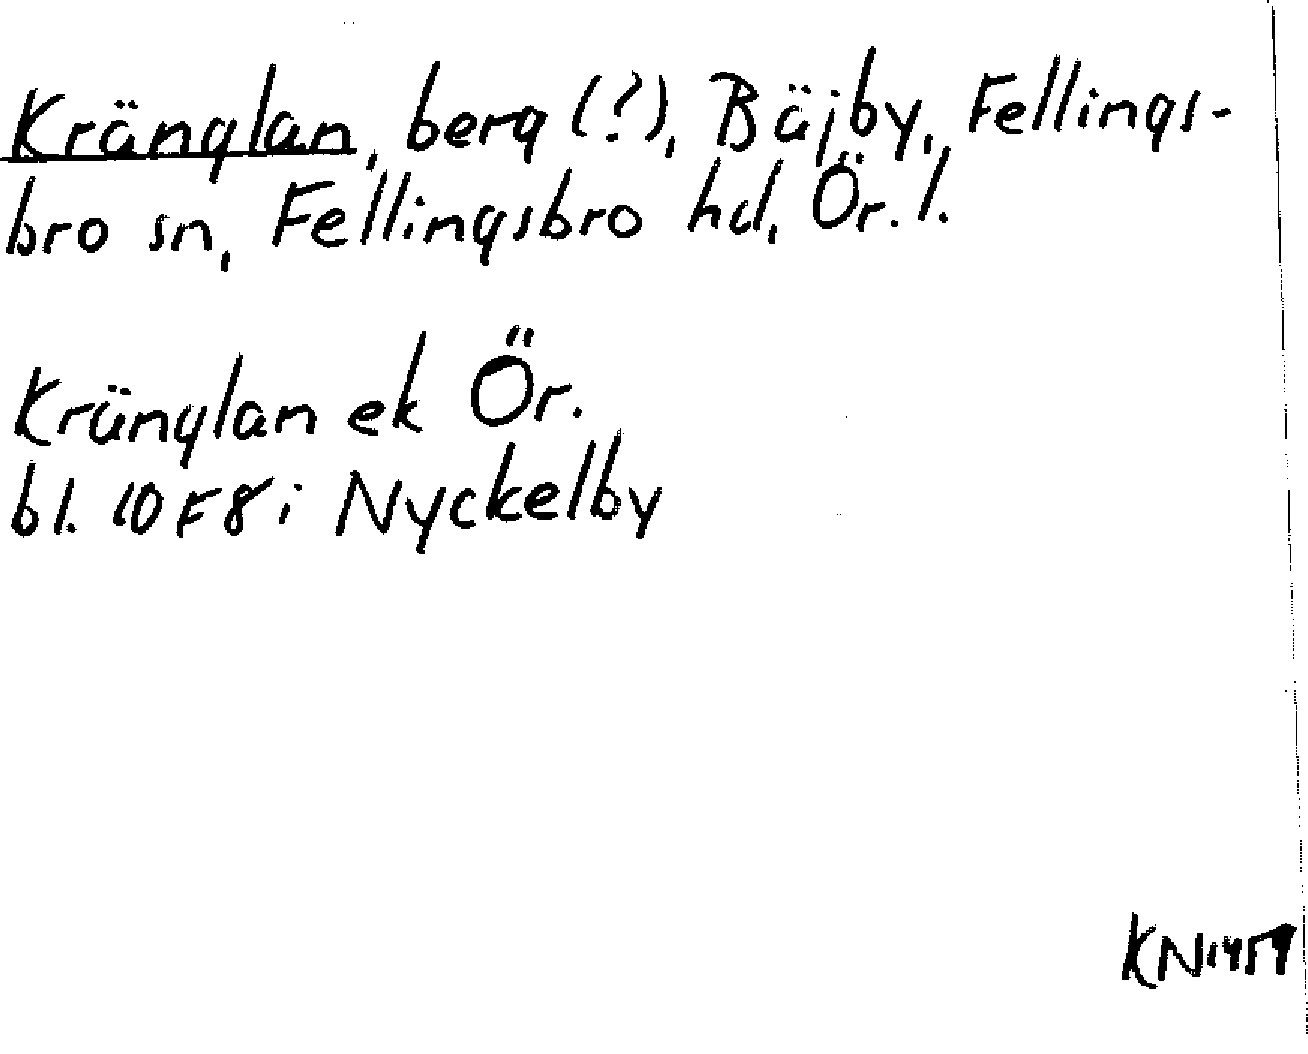 Kränglan, berg (?), Bäjby, Fellings-
bro sn, Fellingsbro hd, Ör. l.
Kränglan ek Ör.
bl. 10F8i Nyckelby